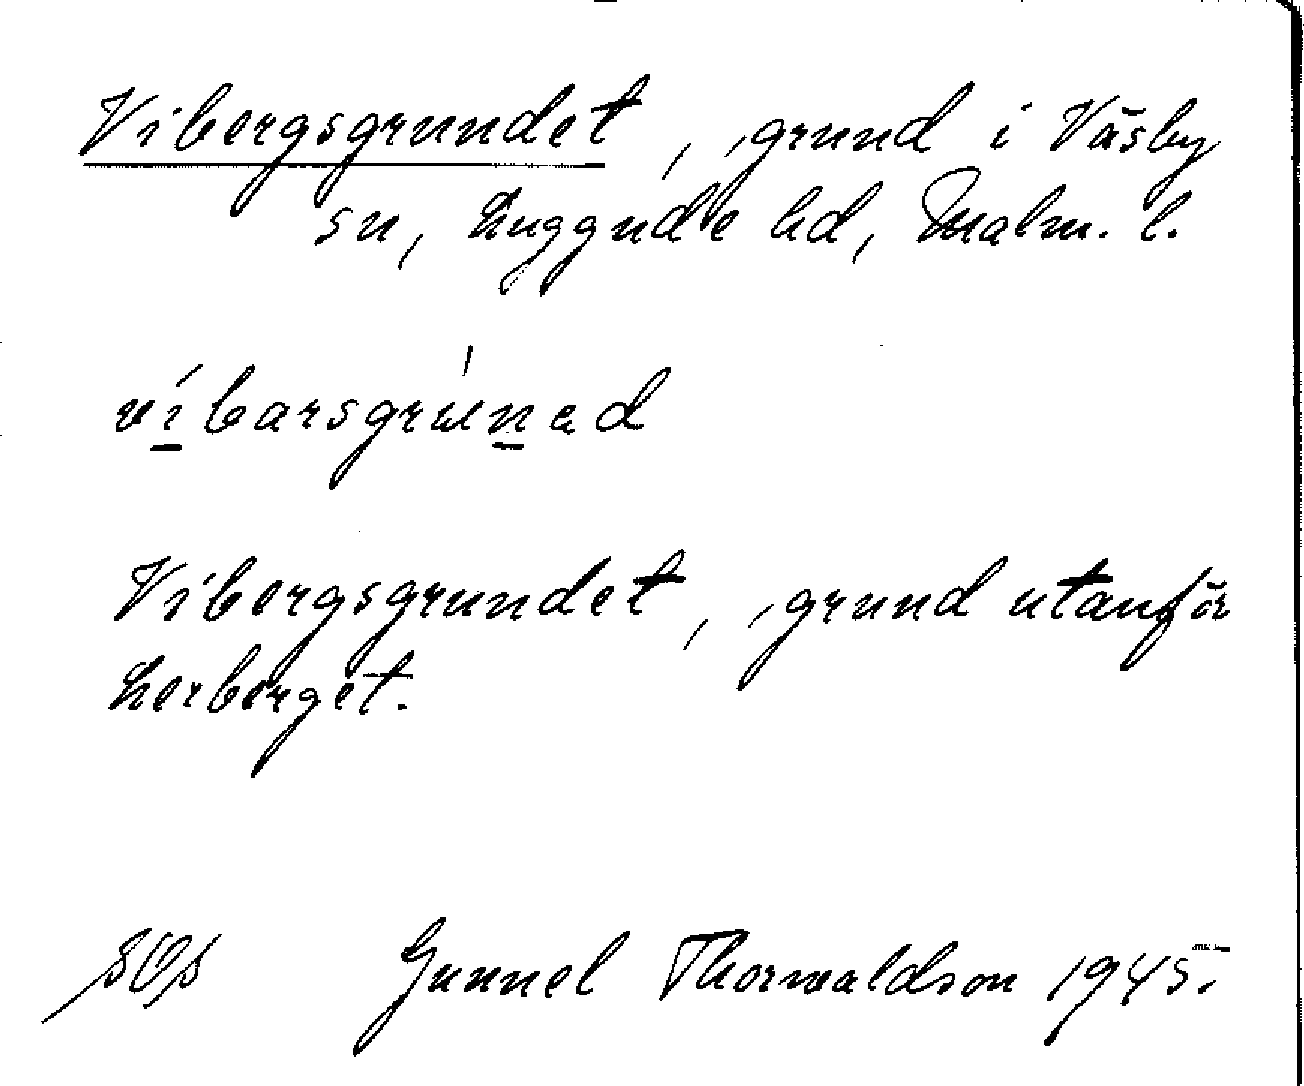 Vibergsgrundet, grund i Väsby
sn, Luggude hd, Malm. l.
víbarsgrúnəd
Vibergsgrundet, grund utanför
Lerberget.
Gunnel Thorwaldson 1945.